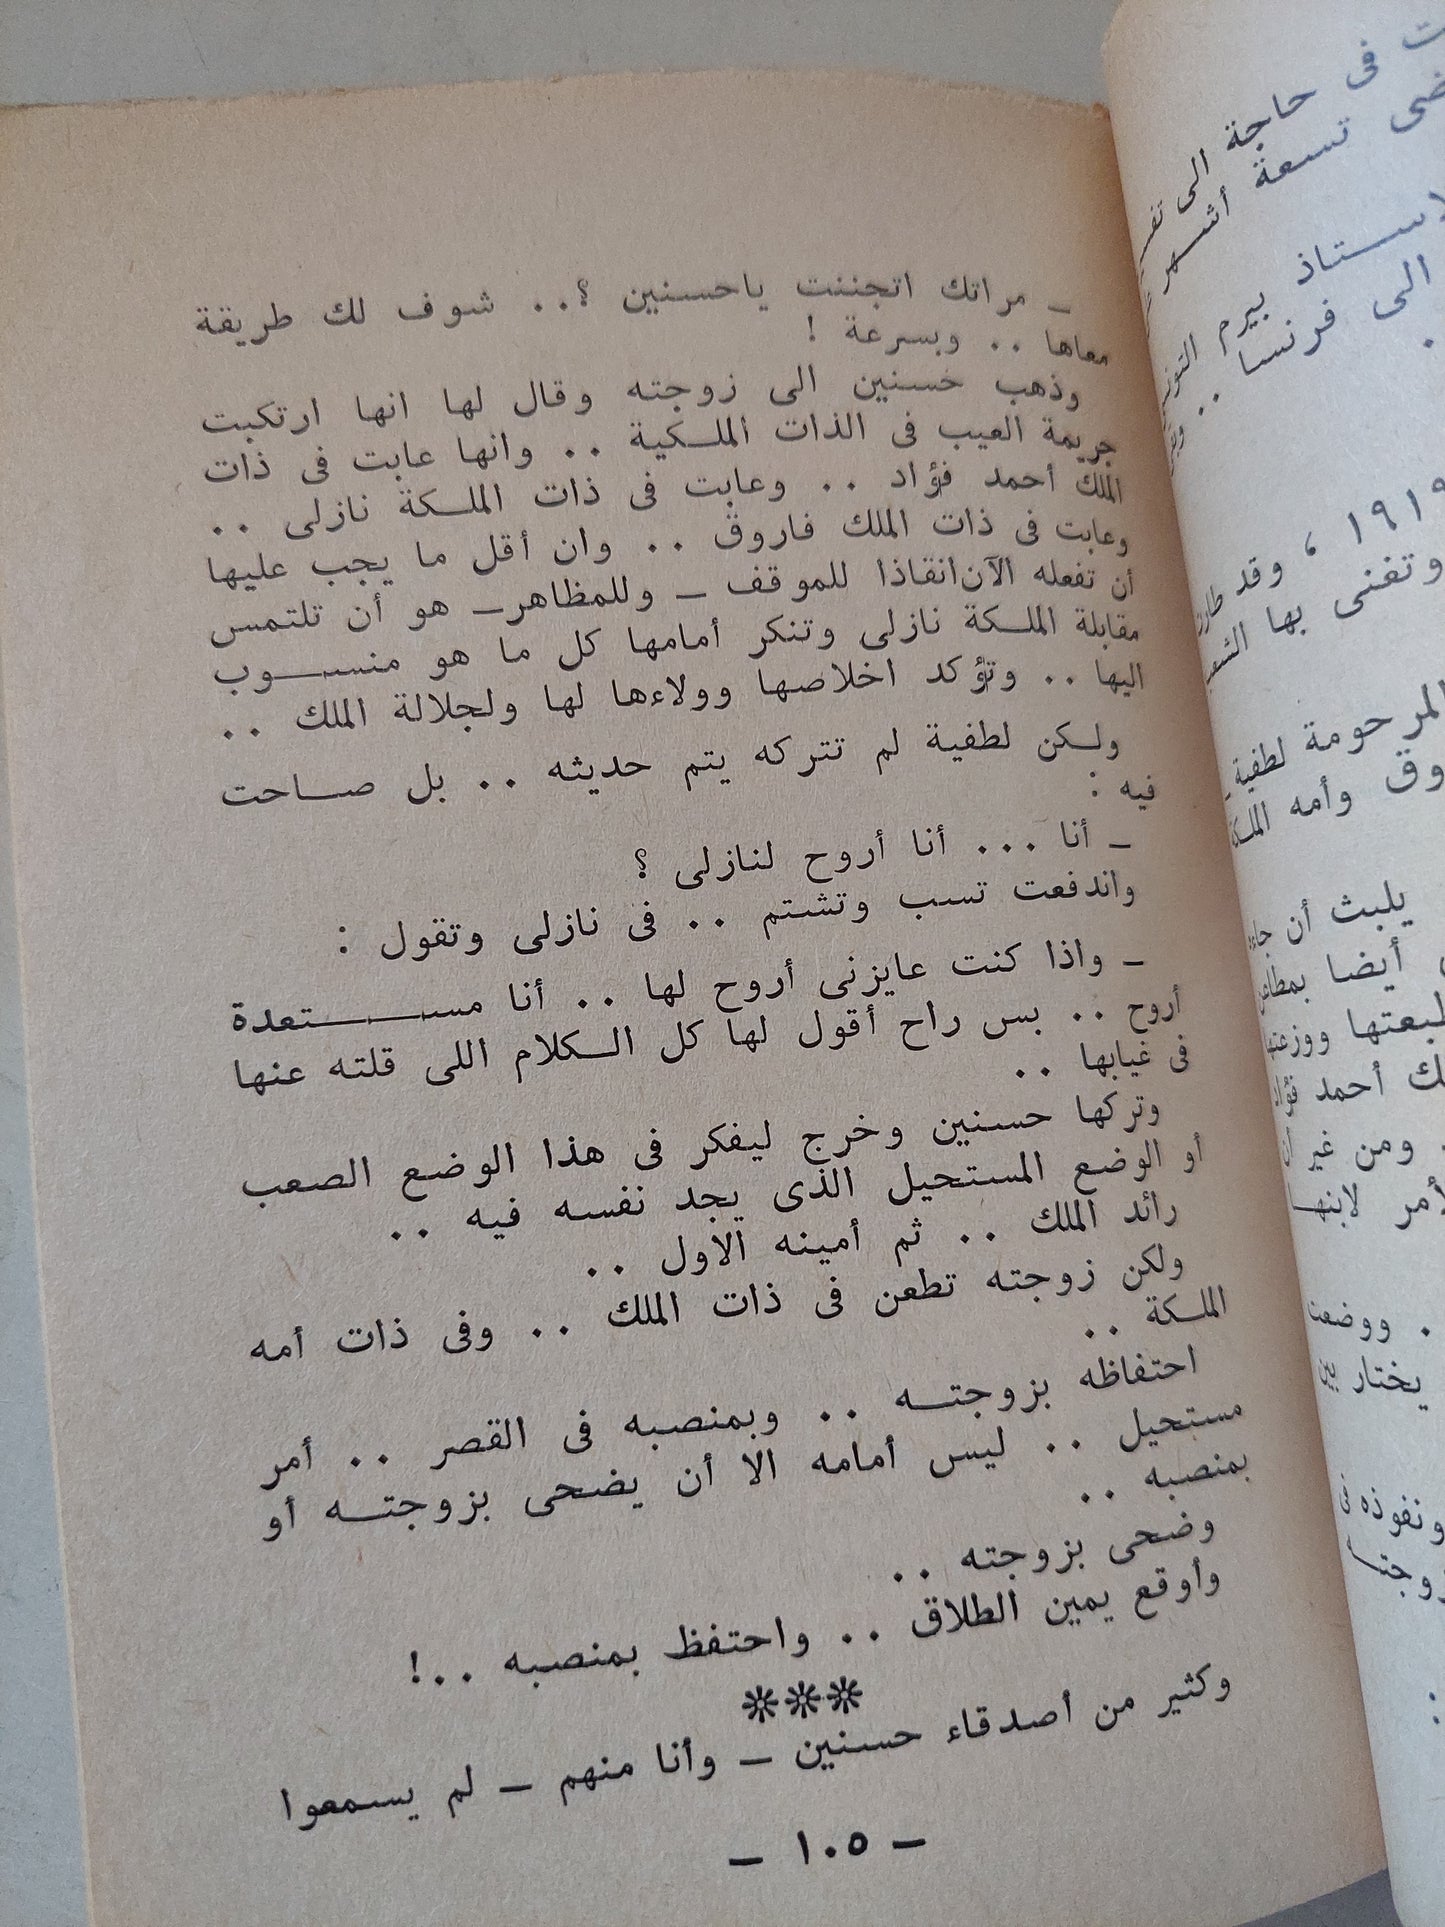 ـ مراتك اتجننت ياحسنين ؟.. شوف لك طريقة
معاها .. وبسرعة !
وذهب حسنين الى زوجته وقال لها انها ارتكبت
جريمة العيب فى الذات الملكية .. وانها عابت فى ذات
الملك أحمد فؤاد .. وعابت فى ذات الملكة نازلى ..
وعابت فى ذات الملك فاروق .. وان أقل ما يجب عليها
أن تفعله الآن انقاذا للموقف ـ وللمظاهر ـ هو أن تلتمس
مقابلة الملكة نازلى وتنكر أمامها كل ما هو منسوب
اليها .. وتؤكد اخلاصها وولاءها لها ولجلالة الملك ..
ولكن لطفية لم تتركه يتم حديثه .. بل صاحت
فيه :
ـ أنا ... أنا أروح لنازلى ؟
واندفعت تسب وتشتم .. فى نازلى وتقول :
ـ واذا كنت عايزنى أروح لها .. أنا مستعدة
أروح .. بس راح أقول لها كل الكلام اللى قلته عنها
فى غيابها ..
وتركها حسنين وخرج ليفكر فى هذا الوضع الصعب
أو الوضع المستحيل الذى يجد نفسه فيه ..
رائد الملك .. ثم أمينه الاول ..
ولكن زوجته تطعن فى ذات الملك .. وفى ذات أمه
الملكة ..
احتفاظه بزوجته .. وبمنصبه فى القصر .. أمر
مستحيل .. ليس أمامه الا أن يضحى بزوجته أو
بمنصبه ..
وضحى بزوجته ..
وأوقع يمين الطلاق .. واحتفظ بمنصبه ..!
***
وكثير من أصدقاء حسنين ـ وأنا منهم ـ لم يسمعوا
ـ ١٠٥ ـ
فى حاجة الى
تسعة أشهر
بيرم
الى فرنسا ..
١٩١٩ ، وقد
وتغنى بها
المرحومة لطفية
وأمه الملكة
يلبث أن جاء
أيضا
ووزعتها
أحمد فؤاد
. ومن غير أن
لابنها
. ووضعت
يختار بين
ونفوذه فى